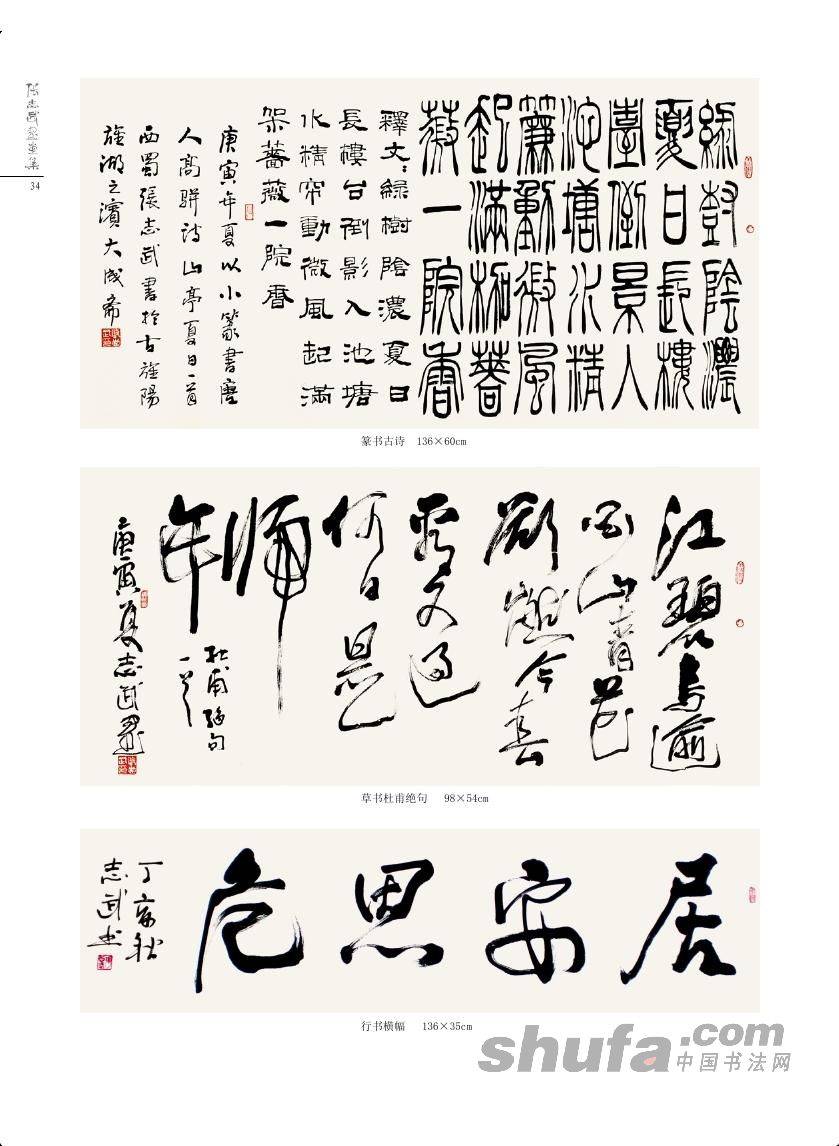 张志武書畫集
34
綠樹陰濃
夏日長樓
臺倒景入
沱塘水精
簾動微風
起滿架薔
薇一院香
釋文：綠樹陰濃夏日
長樓台倒影入池塘
水精帘動微風起滿
架薔薇一院香
庚寅年夏以小篆書唐
人高駢詩山亭夏日一首
西蜀張志武書於古雒陽
雒湖之濱大成齋
篆书古诗 136×60cm
江碧鳥逾
白山青花
欲燃今春
看又過
何日是
歸
年
杜甫絕句
一首
庚寅夏志武書
草书杜甫绝句 98×54cm
居安思危
丁亥秋
志武书
行书横幅 136×35cm
shufa.com
中国书法网